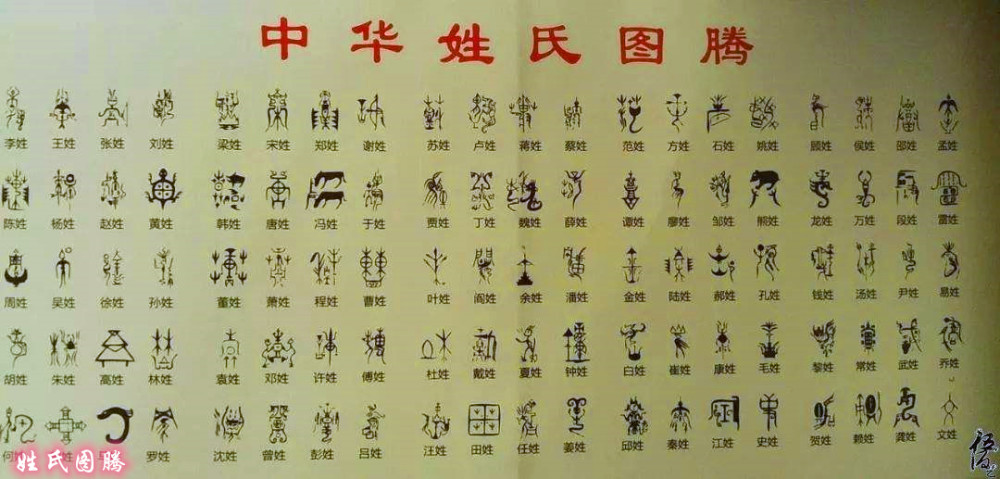 中华姓氏图腾
李姓 王姓 张姓 刘姓 梁姓 宋姓 郑姓 谢姓 苏姓 卢姓 蒋姓 蔡姓 范姓 方姓 石姓 姚姓 顾姓 侯姓 邵姓 孟姓
陈姓 杨姓 赵姓 黄姓 韩姓 唐姓 冯姓 于姓 贾姓 丁姓 魏姓 薛姓 谭姓 廖姓 邹姓 熊姓 龙姓 万姓 段姓 雷姓
周姓 吴姓 徐姓 孙姓 董姓 萧姓 程姓 曹姓 叶姓 阎姓 余姓 潘姓 金姓 陆姓 郝姓 孔姓 钱姓 汤姓 尹姓 易姓
胡姓 朱姓 高姓 林姓 袁姓 邓姓 许姓 傅姓 杜姓 戴姓 夏姓 钟姓 白姓 崔姓 康姓 毛姓 黎姓 常姓 武姓 乔姓
何 罗姓 沈姓 曾姓 彭姓 吕姓 汪姓 田姓 任姓 姜姓 邱姓 秦姓 江姓 史姓 贺姓 赖姓 龚姓 文姓
姓氏图腾